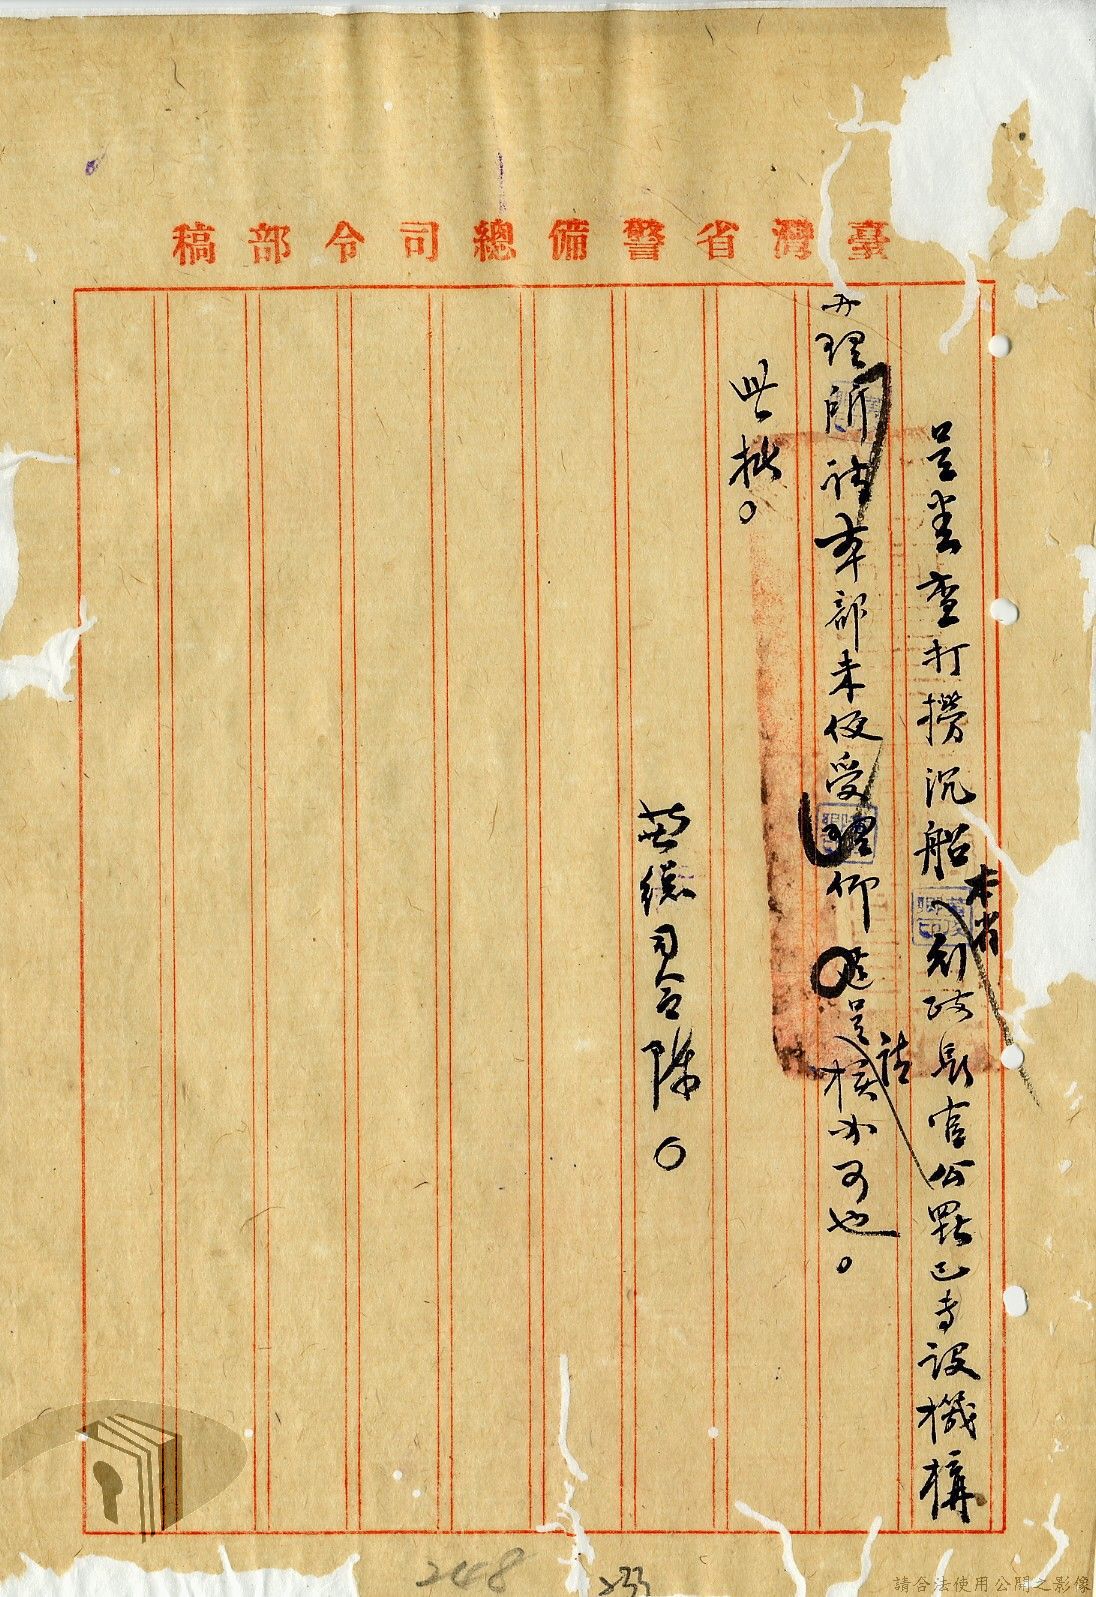 臺灣省警備總司令部稿
呈悉查打撈沉船本省行政長官公署已專設機構
辦理所請本部未便受理仰逕呈請核示可也。
此批。
兼總司令陳〇
248
233
請合法使用公開之影像